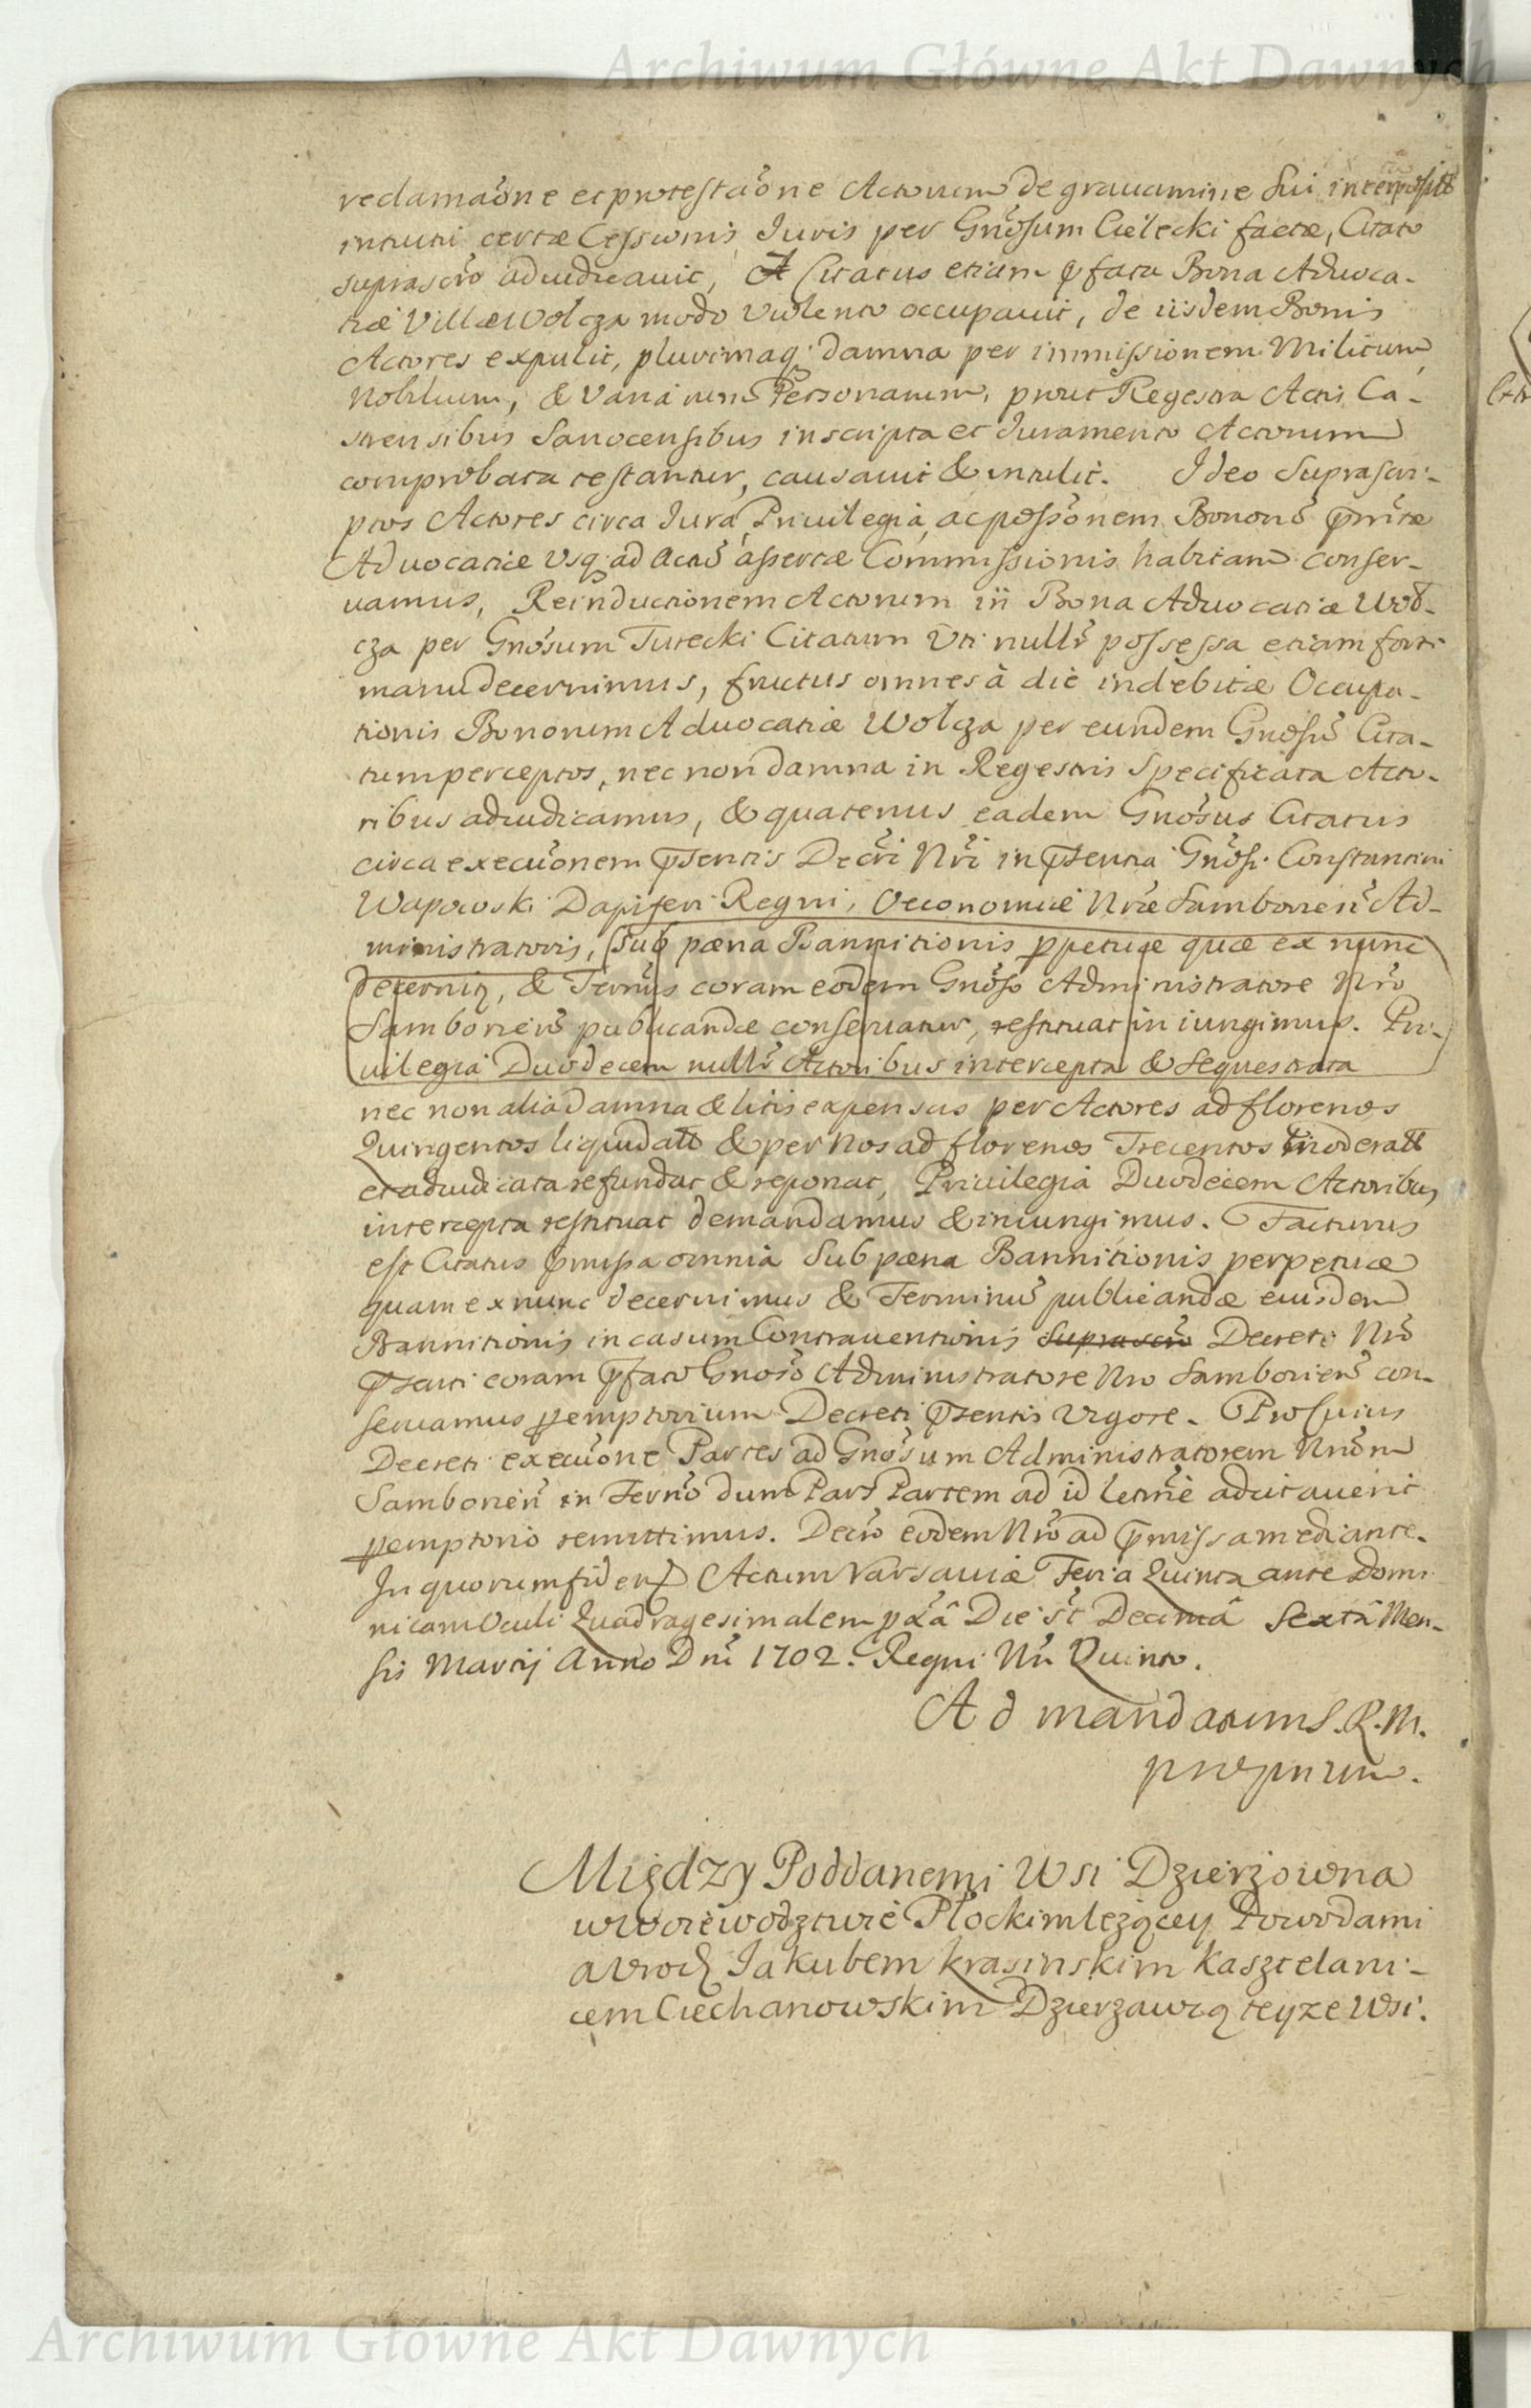 Archiwum Główne Akt Dawnych
reclamaōne et protestaōne Actorum de gravamine sui interposita
intuitu certæ Cessionis Juris per Gnōsum Cielecki factæ, Citato
suprascro adiudicavit, Et Citatus etiam pfata Bona Advoca-
tiæ Villæ Wolcza modo violento occupavit, de iisdem Bonis
Actores expulit, plurimaq; damna per immissionem Militum,
Nobilium, & variarum Personarum, prout Regestra Actis Ca-
strensibus Sanocensibus inscripta et Juramento Actorum
comprobata testantur, causavit & intulit. Ideo Suprascri-
ptos Actores circa Jura, Privilegia, ac possōnem Bonorū
Advocatiæ Vsq; ad Actū assertæ Commissionis habitam conser-
vamus, Reinductionem Actorum in Bona Advocatiæ Wol-
cza per Gnōsum Turecki Citatum Uti nullr possessa etiam forti
manu decernimus, fructus omnes à die indebitæ Occupa-
tionis Bonorum Advocatiæ Wolcza per eundem Gnosū Cita-
tum perceptos, nec non damna in Regestris Specificata Acto-
ribus adiudicamus, & quatenus eadem Gnōsus Citatus
circa executionem pſentis Decri Nri in pſentia Gnōsi Constantini
Wapowski Dapiferi Regni, Oeconomiæ Nræ Samborien Ad-
ministratoris, sub pœna Bannitionis ppetuæ quæ ex nunc
decernitq, & Ternus coram eodem Gnōso Administratore Nrō
Samborien publicandæ conservatur, restituat in iungimus. Pri-
vilegia Duodecem nullr Actoribus intercepta & sequestrata
nec non alia damna & litis expensas per Actores ad florenos
Quingentos liquidatt & per Nos ad florenos Trecentos moderatt
et adiudicata refundat & reponat, Privilegia Duodecem Actoribus
intercepta restituat demandamus & iniungimus. Facturus
est Citatus pmissa omnia Sub pœna Bannitionis perpetuæ
quam ex nunc decernimus & Terminū publicandæ eiusdem
Bannitionis in casum Contraventionis suprascro Decreto Nrō
pſenti coram pfato Gnoso Administratore Nro Samborien con-
servamus pemptorium Decreti pſentis Vigore. Pro cuius
Decreti execuōne Partes ad Gnōsum Administratorem Nrum
Samborien in Ternō dum Pars Partem ad id letme adcitaverit
pemptorio remittimus. Decro eodem Nrō ad pmissa mediante.
In quorum fidem Actum Varsaviæ Feria Quinta ante Domi
nicam Oculi Quadragesimalem pxa Die st Decimâ Sextâ Men-
sis Martij Anno Dni 1702. Regni Nri Quinto.
Ad mandatum S. R. M.
proprium.
Między Poddanemi Wsi Dzierżowna
w Woiewodztwie Płockim leżącey Powodami
a Urodz Jakubem Krasinskim Kasztelani-
cem Ciechanowskim Dzierzawcą teyze Wsi.
Archiwum Główne Akt Dawnych